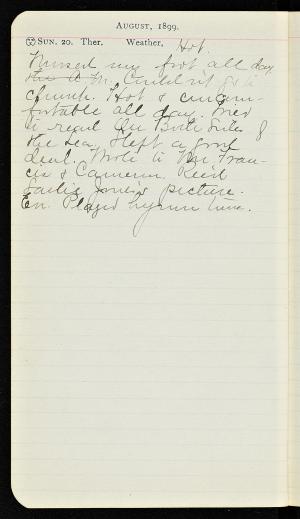 August, 1899.
Sun. 20. Ther. Weather, Hot.
Nursed my foot all day
A.M. Couldn't go to
church. Hot & uncom-
fortable all day. Tried
to read On Both Sides of
the Sea. Slept a good
deal. Wrote to Fran-
cis & Cameron. Rec'd
Sadie Jones's picture.
Ev. Played hymn tunes.